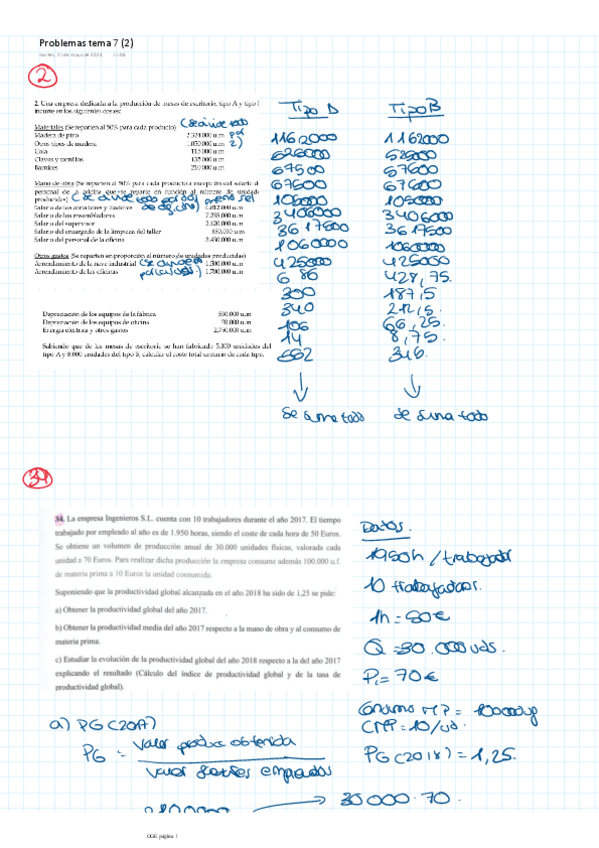 Problemas tema 7 (2)
2
2. Una empresa dedicada a la producción de mesas de escritorio, tipo A y tipo
incurre en los siguientes costes:
Tipo A
Tipo B
Materiales (Se reparten al 50% para cada producto) (Se divide todo por 2)
Madera de pino 2.324.000 u.m
Otros tipos de madera 1.050.000 u.m
Cola 115.000 u.m
Clavos y tornillos 135.000 u.m
Barnices 210.000 u.m
Mano de obra (Se reparten al 50% para cada producto a excepción del salario del
personal de la oficina que se reparte en función al número de unidades
producidas)
Salario del supervisor 2.120.000 u.m
Salario del encargado de la limpieza del taller 850.000 u.m
Salario del personal de la oficina 3.430.000 u.m
Otros gastos (Se reparten en proporción al número de unidades producidas)
Arrendamiento de la nave industrial 1.500.000 u.m
Arrendamiento de las oficinas 1.700.000 u.m
Depreciación de los equipos de la fábrica 530.000 u.m
Depreciación de los equipos de oficina 70.000 u.m
Energía eléctrica y otros gastos
Sabiendo que de las mesas de escritorio se han fabricado 5.000 unidades del
tipo A y 8.000 unidades del tipo B, calcular el coste total unitario de cada tipo.
1162000 1162000
525000 525000
67500 67500
105000 105000
3406000 3406000
3617500 3617500
1060000 1060000
425000 425000
686 428,75.
300 187,5
340 212,5.
106 66,25.
14 8,75.
552 345.
Se suma todo
Se suma todo
34
34. La empresa Ingenieros S.L. cuenta con 10 trabajadores durante el año 2017. El tiempo
trabajado por empleado al año es de 1.950 horas, siendo el coste de cada hora de 50 Euros.
Se obtiene un volumen de producción anual de 30.000 unidades físicas, valorada cada
unidad a 70 Euros. Para realizar dicha producción la empresa consume además 100.000 u.f.
de materia prima a 10 Euros la unidad consumida.
Suponiendo que la productividad global alcanzada en el año 2018 ha sido de 1,25 se pide:
a) Obtener la productividad global del año 2017.
b) Obtener la productividad media del año 2017 respecto a la mano de obra y al consumo de
materia prima.
c) Estudiar la evolución de la productividad global del año 2018 respecto a la del año 2017
explicando el resultado (Cálculo del índice de productividad global y de la tasa de
productividad global).
Datos.
1950h / trabajador
10 trabajadores.
1h = 50€
Q = 30.000 uds.
P = 70€
Consumo MP = 100000
CMP = 10/ud.
PG (2018) = 1,25.
a) PG (2017)
PG = valor produc obtenida
valor factores empleados
→ 30000·70.
CGE página 1